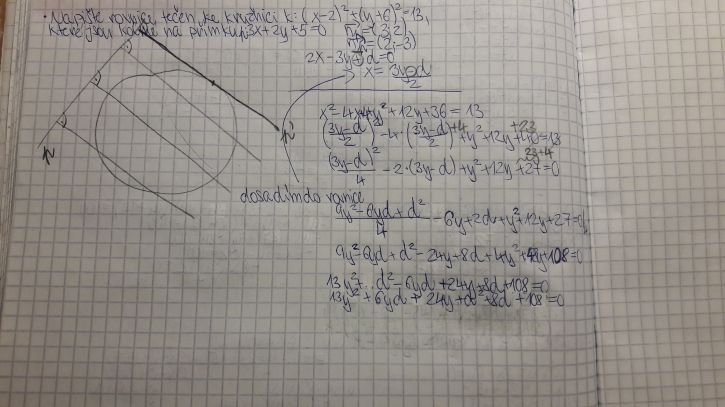 • Napište rovnice tečen ke kružnici k: (x-2)²+(y+6)²=13,
které jsou kolmé na přímku p: 3x+2y+5=0 n⃗=(3;2)
n⃗=(2;-3)
2x-3y+d=0
→ x = 3y-d / 2
x²-4x+4+y²+12y+36=13
(3y-d / 2)² - 4·(3y-d / 2) + y²+12y+40=13
+4
(3y-d)² / 4 - 2·(3y-d) + y²+12y+27=0
23+4
p
p'
dosadím do rovnice
9y²-6yd+d² / 4 - 6y+2d+y²+12y+27=0
9y²-6yd+d²-24y+8d+4y²+48y+108=0
13y²+ d²-6yd+24y+8d+108=0
13y²+6yd+24y+d²+8d+108=0